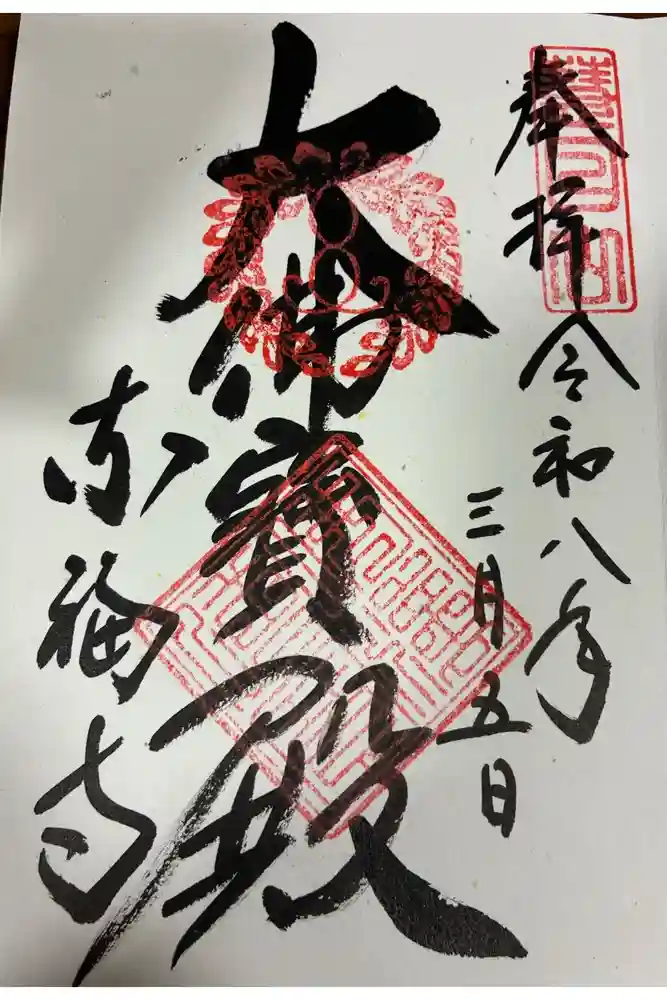 奉拝
令和八年
三月五日
大佛寳殿
東福寺
慧日山